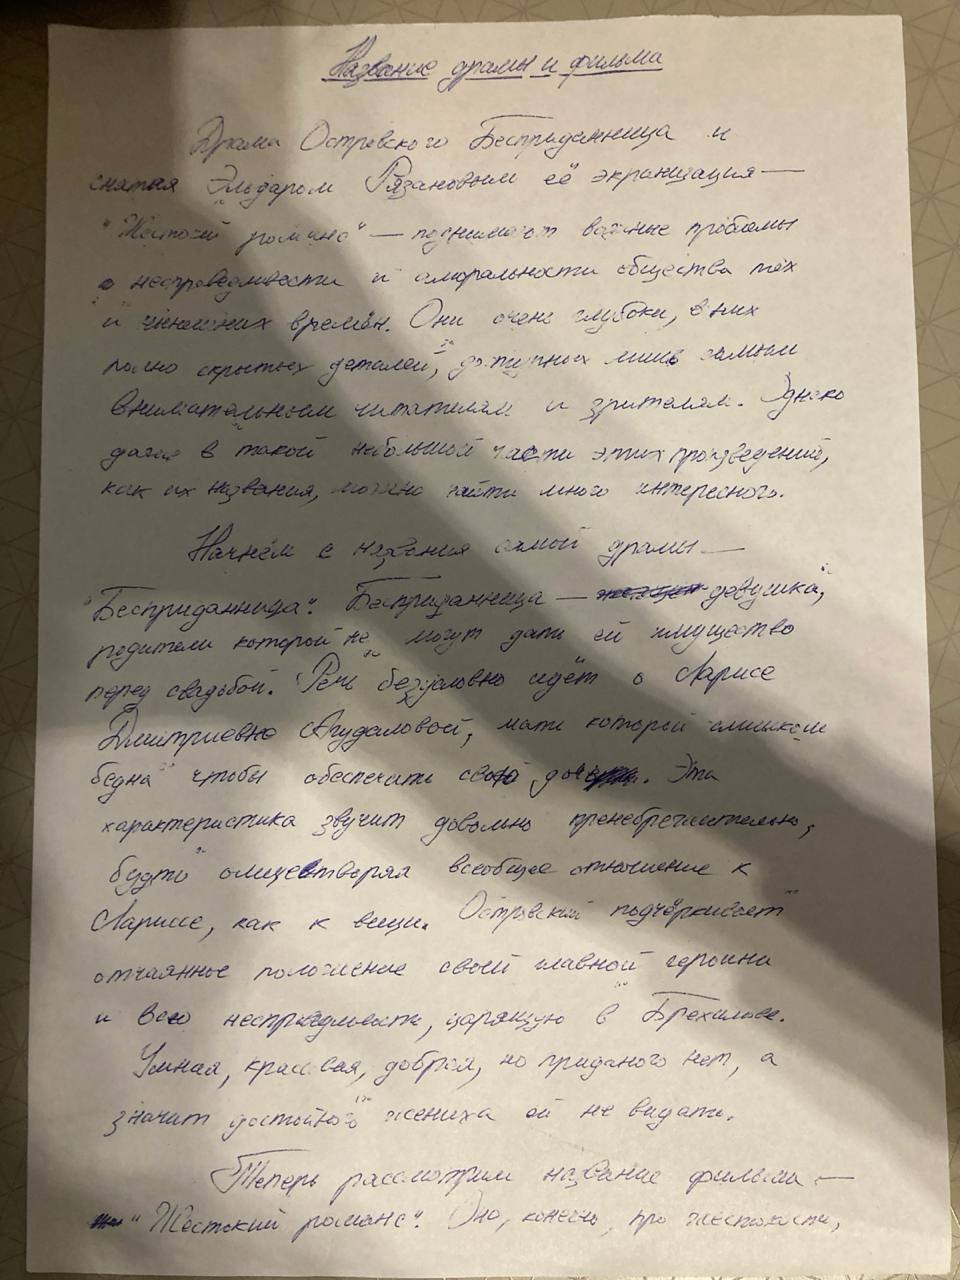 Название драмы и фильма
Драма Островского Бесприданница и
снятая Эльдаром Рязановым её экранизация —
"Жестокий романс" — поднимают важные проблемы
о несправедливости и аморальности общества тех
и нынешних времён. Они очень глубоки, в них
полно скрытых деталей, доступных лишь самым
внимательным читателям и зрителям. Однако
даже в такой небольшой части этих произведений,
как их названия, можно найти много интересного.
Начнём с названия самой драмы —
"Бесприданница". Бесприданница — девушка,
родители которой не могут дать ей имущество
перед свадьбой. Речь безусловно идёт о Ларисе
Дмитриевне Огудаловой, мать которой слишком
бедна чтобы обеспечить свою дочь. Эта
характеристика звучит довольно пренебрежительно,
будто олицетворяя всеобщее отношение к
Ларисе, как к вещи. Островский подчёркивает
отчаянное положение своей главной героини
и всю несправедливость, царящую в Бряхимове.
Умная, красивая, добрая, но приданого нет, а
значит достойного жениха ей не видать.
Теперь рассмотрим название фильма —
"Жестокий романс". Оно, конечно, про жестокости,